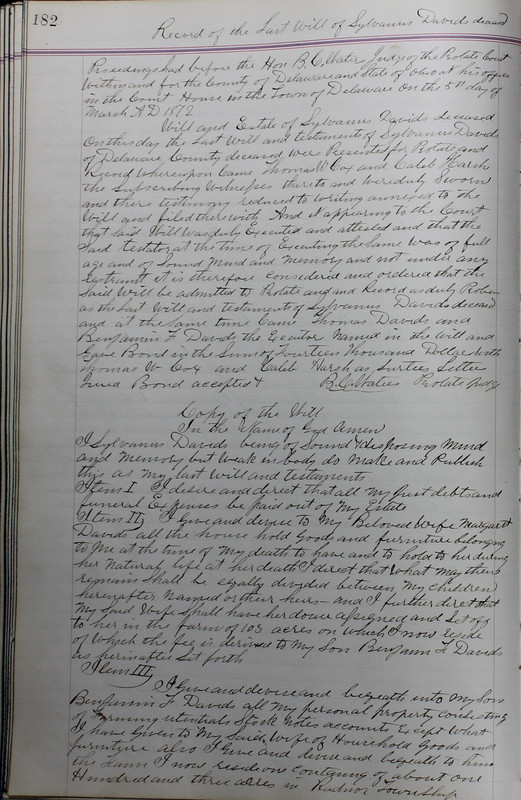 182
Record of the Last Will of Sylvanus Davids deceased
Proceedings had before the Hon B. C. Waters Judge of the Probate Court
Within and for the County of Delaware and State of Ohio at his office
in the Court House in the Town of Delaware on the 5th day of
March A D 1872
Will and Estate of Sylvanus Davids deceased
On this day the Last Will and testament of Sylvanus Davids
of Delaware County deceased was Presented for Probate and
Record Whereupon Came Thomas W Cox and Caleb Harsh
the Subscribing Witnesses thereto and were duly Sworn
and there testimony reduced to writing annexed to the
Will and filed therewith And it appearing to the Court
that said Will was duly Executed and attested and that the
Said testator at the time of Executing the Same was of full
age and of Sound Mind and Memory and not under any
restraint it is therefore Considered and ordered that the
Said Will be admitted to Probate and Record as duly Proben
as the Last Will and testament of Sylvanus Davids deceased
and at the Same time Came Thomas Davids and
Benjamin F Davids the Executor Named in the Will and
Gave Bond in the Sum of Fourteen Thousand Dollars with
Thomas W Cox and Caleb Harsh as Surties Letter
Isued Bond accepted &
B. C. Waters Probate Judge
Copy of the Will
In the Name of God Amen
I Sylvanus Davids being of Sound & Disposing Mind
and Memory but Weak in body do Make and Publish
this as My last Will and testament
Item I I desire and direct that all my just debts and
funeral Expenses be paid out of My Estate
Item II I Give and devise to My Beloved Wife Margaret
Davids all the house hold Goods and furniture belonging
to Me at the time of My death to have and to hold to her during
her Natural life at her death I direct that What may then
remain Shall be equally divided between My Children
hereinafter Named or their heirs - and I further direct that
My Said Wife Shall have her dower assigned and Set off
to her in the farm of 103 acres on which I now reside
of Which the fee is devised to My Son Benjamin F Davids
as herinafter Set forth
Item III
I Give and devise and bequeath unto My Son
Benjamin F Davids all My personal property consisting
of Farming utentials Stock Notes accounts Except What
I have Given to My Said Wife of Household Goods and
furniture also I Give and devise and bequeath to him
the Farm I now reside on Containing of about one
Hundred and three acres in Radnor Township